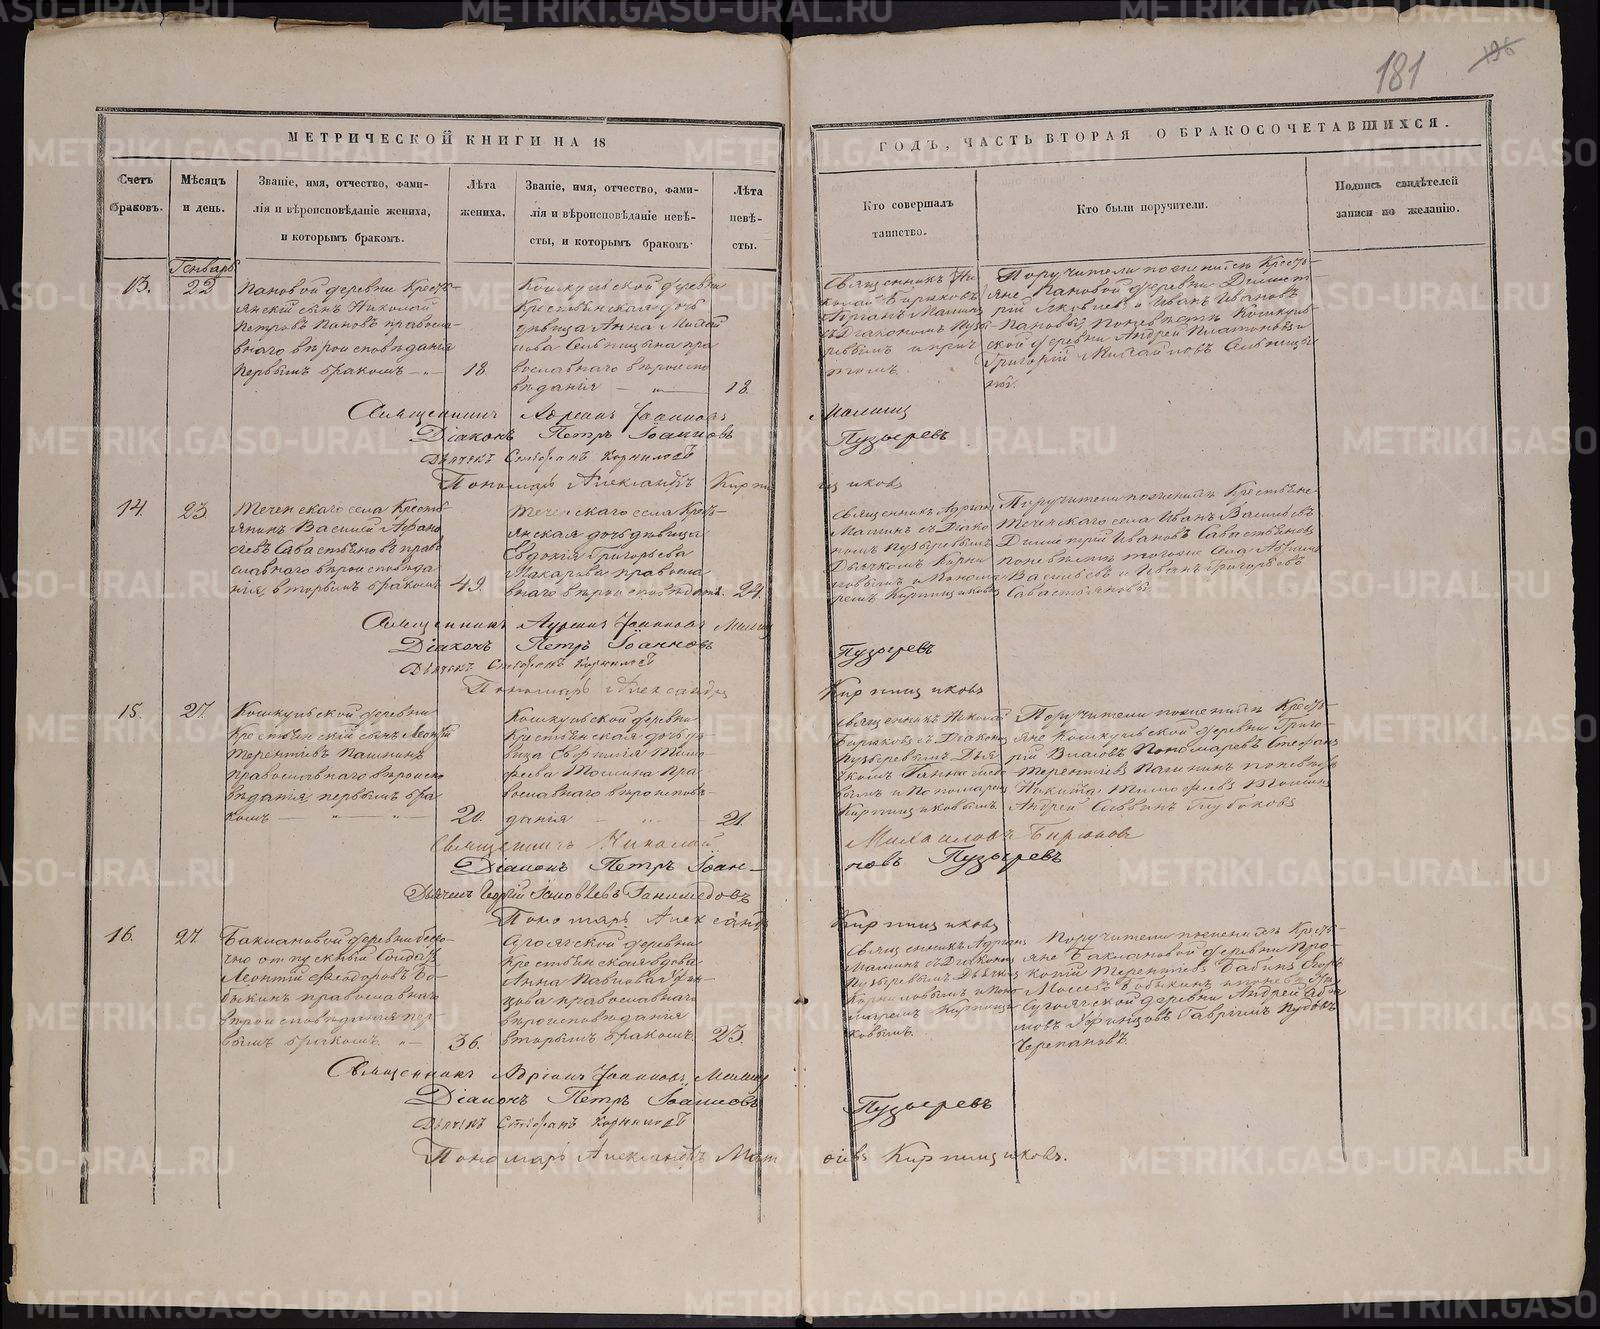 181
196
МЕТРИЧЕСКОЙ КНИГИ НА 18
ГОДЪ, ЧАСТЬ ВТОРАЯ О БРАКОСОЧЕТАВШИХСЯ.
Счетъ
браковъ.
Мѣсяцъ
и день.
Званіе, имя, отчество, фами-
лія и вѣроисповѣданіе жениха,
и которымъ бракомъ.
Лѣта
жениха.
Званіе, имя, отчество, фами-
лія и вѣроисповѣданіе невѣ-
сты, и которымъ бракомъ.
Лѣта
невѣ-
сты.
Кто совершалъ
таинство.
Кто были поручители.
Подпись свидѣтелей
записи по желанію.
Генварь
13.
22
Пановой деревни Кресть-
янскій сынъ Николай
Петровъ Пановъ правосла-
внаго вѣроисповѣданія
первымъ бракомъ
18.
Кошкульской деревни
Крестьянская дочь
дѣвица Анна Михай
лова пра
вославнаго вѣроиспо
вѣданія
18.
Священникъ Ни
колай Бирюковъ
Малин
съ Діакономъ Пузы
ревымъ и прич
томъ.
Поручители по женихѣ Кресть-
яне Пановой деревни Димит-
рій Яковлевъ и Иванъ Ивановъ
Пановы, по невѣстѣ Кошкуль-
ской деревни Андрей Платоновъ и
Григорій Михайловъ
Священникъ Адріанъ Іоанновъ Малинъ
Діаконъ Петръ Іоанновъ Пузыревъ
Дьячекъ Стефанъ Корниловъ
Пономарь Александръ Кирпищиковъ
14.
23.
Теченскаго села Кресть
янинъ Василій Афана
сьевъ Савастьяновъ право
славнаго вѣроисповѣда
нія, вторымъ бракомъ
49.
Теченскаго села Кресть-
янская дочь дѣвица
Евдокія Григорьева
Макарова правосла
внаго вѣроисповѣданія.
24.
Священникъ Адріанъ
Малинъ съ Діако
номъ Пузыревымъ
Дьячкомъ Корни
ловымъ и Понома
ремъ Кирпищиковымъ
Поручители по женихѣ Крестьяне
Теченскаго села Иванъ Васильевъ
Димитрій Ивановъ Савастьяновы
по невѣстѣ тогоже села
Васильевъ и Иванъ Григорьевъ
Савастьяновы
Священникъ Адріанъ Іоанновъ Малинъ
Діаконъ Петръ Іоанновъ Пузыревъ
Дьячекъ Стефанъ Корниловъ
Пономарь Александръ Кирпищиковъ
15.
27.
Кошкульской деревни
крестьянскій сынъ Леонтій
Терентіевъ Пашнинъ
православнаго вѣроиспо
вѣданія, первымъ бра
комъ
20.
Кошкульской деревни
крестьянская дочь дѣ
вица Тимо
феева пра
вославнаго вѣроисповѣ-
данія
21.
Священникъ Николай
Бирюковъ съ Діаконо
Пузыревымъ Дья
чкомъ Ганимедо
вымъ и Пономаремъ
Кирпищиковымъ
Поручители по женихѣ Кресть-
яне Кошкульской деревни Григо-
рій Власовъ Пономаревъ Стефанъ
Терентіевъ Пашнинъ по невѣстѣ
Никита Тимофеевъ
Андрей
Священникъ Николай Михайловъ Бирюковъ
Діаконъ Петръ Іоан- новъ Пузыревъ
Дьячекъ Ганимедовъ
Пономарь Александръ Кирпищиковъ
16.
27.
Баклановой деревни безсро-
чно отпускный Солдатъ
Леонтій Феодоровъ Ба-
быкинъ православнаго
вѣроисповѣданія пер-
вымъ бракомъ
36.
деревни
крестьянская вдова
Анна Павлова
православнаго
вѣроисповѣданія
вторымъ бракомъ.
23.
Священникъ Адріанъ
Малинъ съ Діакономъ
Пузыревымъ Дьячкомъ
Корниловымъ и Поно
маремъ Кирпищи
ковымъ.
Поручители по женихѣ Кресть-
яне Баклановой деревни Про-
копій Терентіевъ Бабинъ Егоръ
деревни Андрей
Гавріилъ
Черепановъ.
Священникъ Адріанъ Іоанновъ Малинъ
Діаконъ Петръ Іоанновъ Пузыревъ
Дьячекъ Стефанъ Корниловъ
Пономарь Александръ Матфіевъ Кирпищиковъ.
METRIKI.GASO-URAL.RU